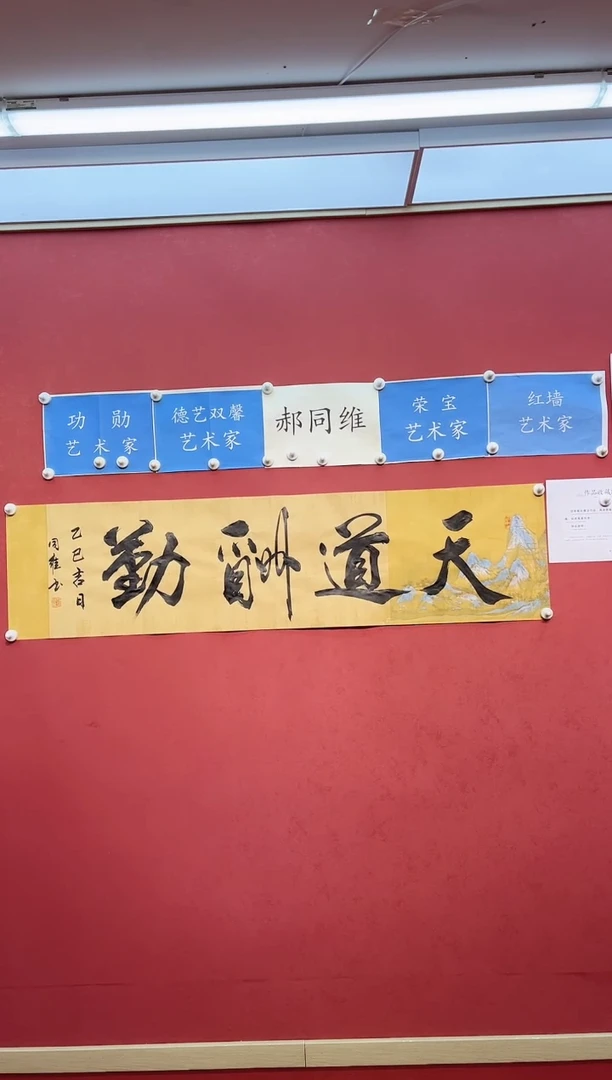 功勋
艺术家
德艺双馨
艺术家
郝同维
荣宝
艺术家
红墙
艺术家
天道酬勤
乙巳吉日
同维书